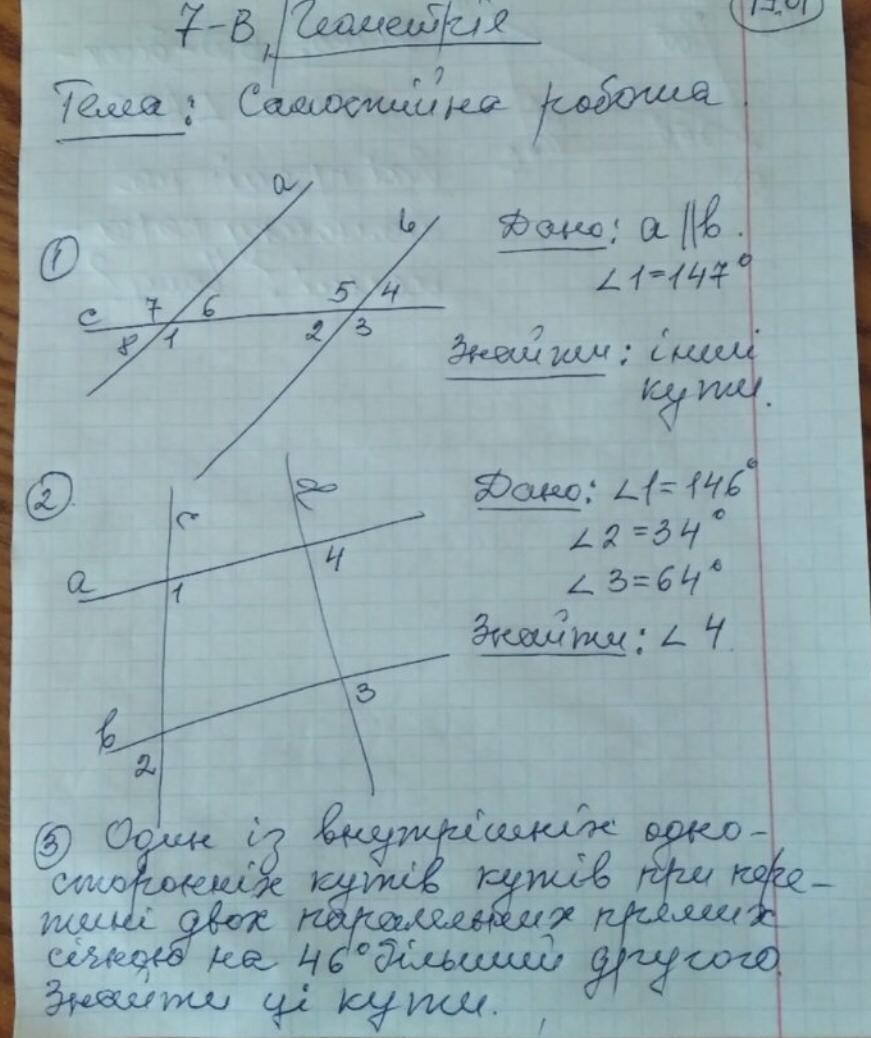 7-В, Геометрія
17.01
Тема: Самостійна робота
1
a
b
c
7 6
8 1
5 4
2 3
Дано: a || b.
∠1=147°
Знайти: інші
кути.
2
c
d
a
1
4
b
2
3
Дано: ∠1=146°
∠2=34°
∠3=64°
Знайти: ∠4
3 Один із внутрішніх одно-
сторонніх кутів кутів при пере-
тині двох паралельних прямих
січною на 46° більший другого.
Знайти ці кути.